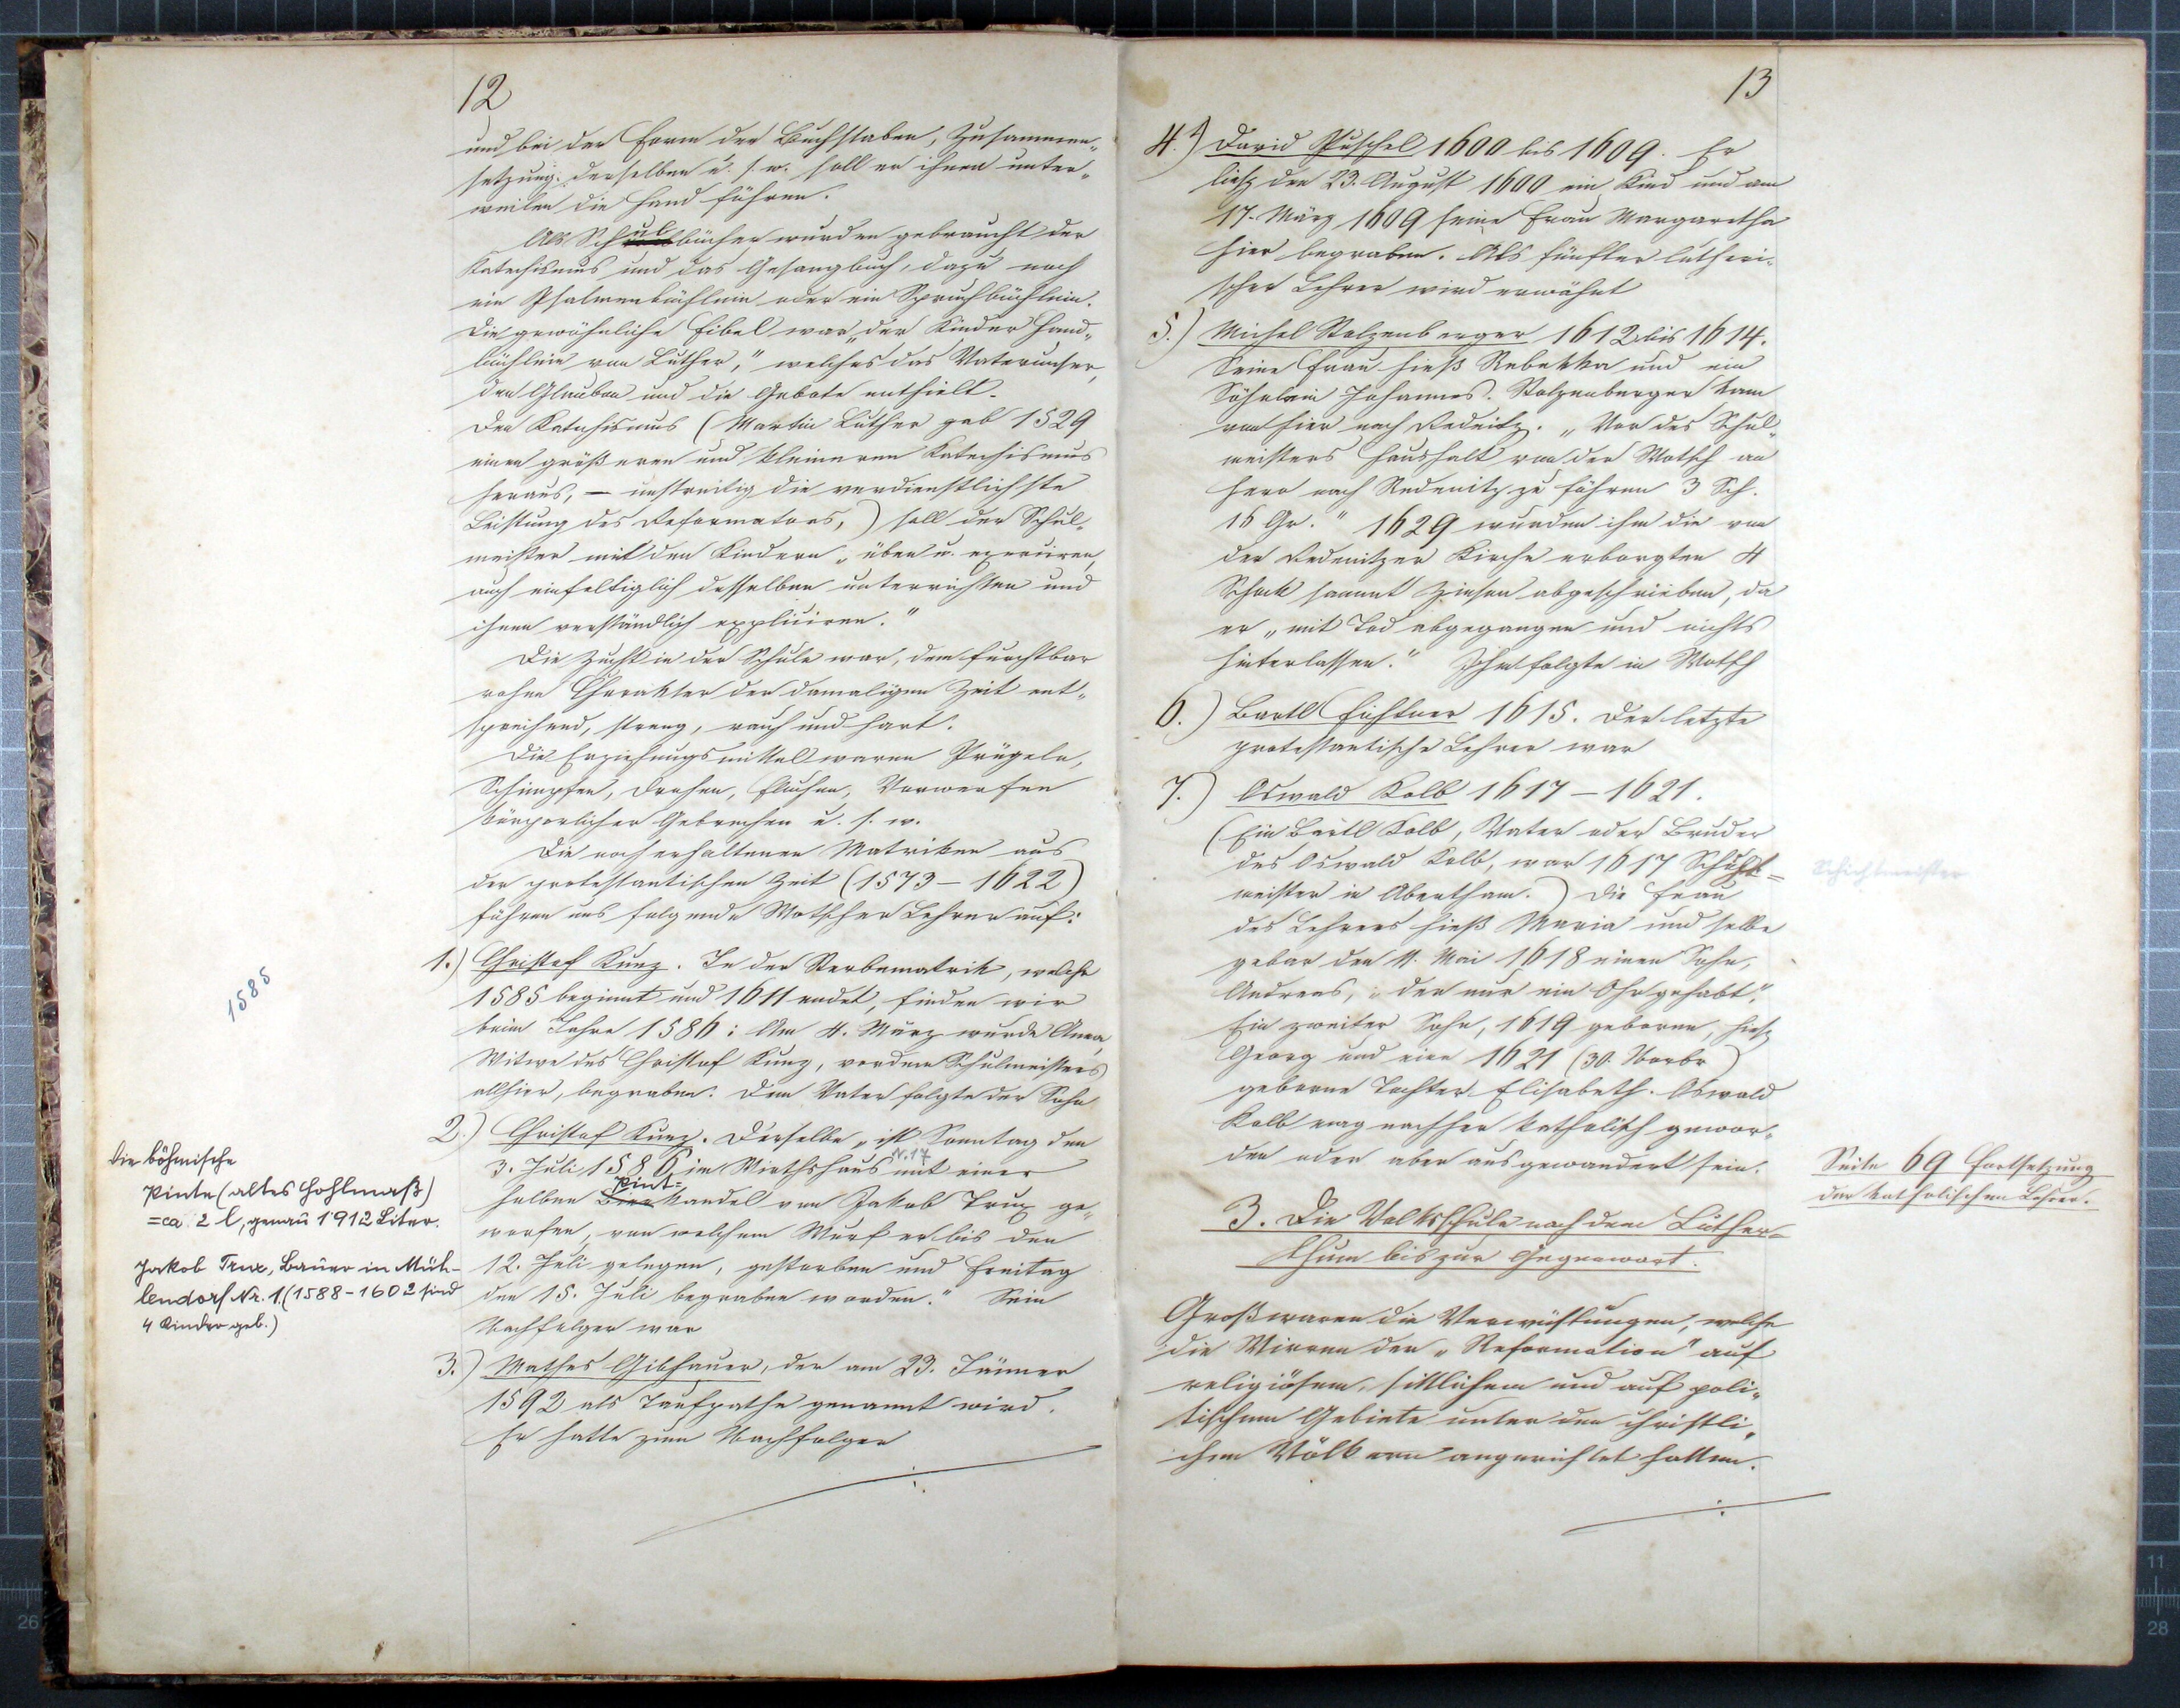 12
und bei der Form der Buchstaben, Zusammen-
setzung derselben u. s. w. soll er ihnen unter-
weilen die Hand führen.
Als Schulbücher wurden gebraucht der
Katechismus und das Gesangbuch, dazu noch
ein Psalmenbüchlein oder ein Spruchbüchlein.
Die gewöhnliche Fibel war "der Kinder Hand-
büchlein von Luther," welches das Vaterunser,
den Glauben und die Gebote enthielt.
Den Katechismus (Martin Luther gab 1529
einen größeren und kleineren Katechismus
heraus, — unstreitig die verdienstlichste
Leistung des Reformators,) soll der Schul-
meister mit den Kindern "üben u. exeruiren,
auch einfeltiglich desselben unterrichten und
ihnen verständlich expliciren."
Die Zucht in der Schule war, dem furchtbar
rohen Charakter der damaligen Zeit ent-
sprechend, streng, rauh und hart.
Die Erziehungsmittel waren Prügeln,
Schimpfen, Drohen, Fluchen, Vorwerfen
körperlicher Gebrechen u. s. w.
Die noch erhaltenen Matriken aus
der protestantischen Zeit (1573 – 1622)
führen uns folgende Motscher Lehrer auf:
1.) Christof Kunz. In der Sterbematrik, welche
1585 beginnt und 1611 endet, finden wir
beim Jahre 1586: Am 4. März wurde Anna,
Witwe des Christof Kunz, vordem Schulmeisters
allhier, begraben. Dem Vater folgte der Sohn
2.) Christof Kunz. Derselbe "ist Sonntag den
3. Juli 1586 im Wirthshaus N. 17 mit einer
halben Pint=kandel von Jakob Trux ge-
worfen, von welchem Wurf er bis den
12. Juli gelegen, gestorben und Freitag
den 15. Juli begraben worden." Sein
Nachfolger war
3.) Mathes Gibhauer, der am 23. Jänner
1592 als Taufpathe genannt wird.
Er hatte zum Nachfolger
1585
Die böhmische
Pinte (altes Hohlmaß)
= ca. 2 l, genau 1·912 Liter.
Jakob Trux, Bauer in Müh-
lendorf Nr. 1. (1588 – 1602 sind
4 Kinder geb.)
13
4.) David Puschel 1600 bis 1609. Er
ließ den 23. August 1600 ein Kind und am
17. März 1609 seine Frau Margaretha
hier begraben. Als fünfter lutheri-
scher Lehrer wird erwähnt
5.) Michel Stolzenberger 1612 bis 1614.
Seine Frau hieß Rebekka und ein
Söhnlein Johannes. Stolzenberger kam
von hier nach Redenitz. "Vor des Schul-
meisters Haushalt von der Motsch an
hero nach Redenitz zu führen 3 Sch.
16 Gr." 1629 wurden ihm die von
der Redenitzer Kirche erborgten 4
Schock sammt Zinsen abgeschrieben, da
er "mit Tod abgegangen und nichts
hinterlassen." Ihm folgte in Motsch
6.) Bartl Fichtner 1615. Der letzte
protestantische Lehrer war
7.) Oswald Kolb 1617 – 1621.
(Ein Bartl Kolb, Vater oder Bruder
des Oswald Kolb, war 1617 Schicht=
meister in Abertham.) Die Frau
des Lehrers hieß Maria und selbe
gebar den 11. Mai 1618 einen Sohn,
Andreas, "der nur ein Ohr gehabt."
Ein zweiter Sohn, 1619 geboren, hieß
Georg und eine 1621 (30. Novbr)
geborne Tochter Elisabeth. Oswald
Kolb mag nachher katholisch gewor-
den oder aber ausgewandert sein.
3. Die Volksschule nach dem Luther-
thum bis zur Gegenwart.
Groß waren die Verwüstungen, welche
die Wirren der "Reformation" auf
religiösem, sittlichem und auf poli-
tischem Gebiete unter den christli-
chen Völkern angerichtet hatten.
Schichtmeister
Seite 69 Fortsetzung
der katholischen Lehrer.
11
26
28